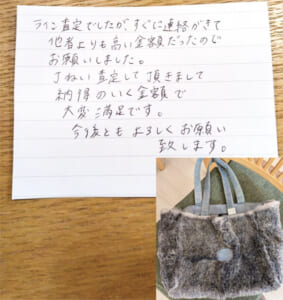 ライン査定でしたが、すぐに連絡がきて
他者よりも高い金額だったので
お願いしました。
丁ねい査定して頂きまして
納得のいく金額で
大変満足です。
今後ともよろしくお願い
致します。